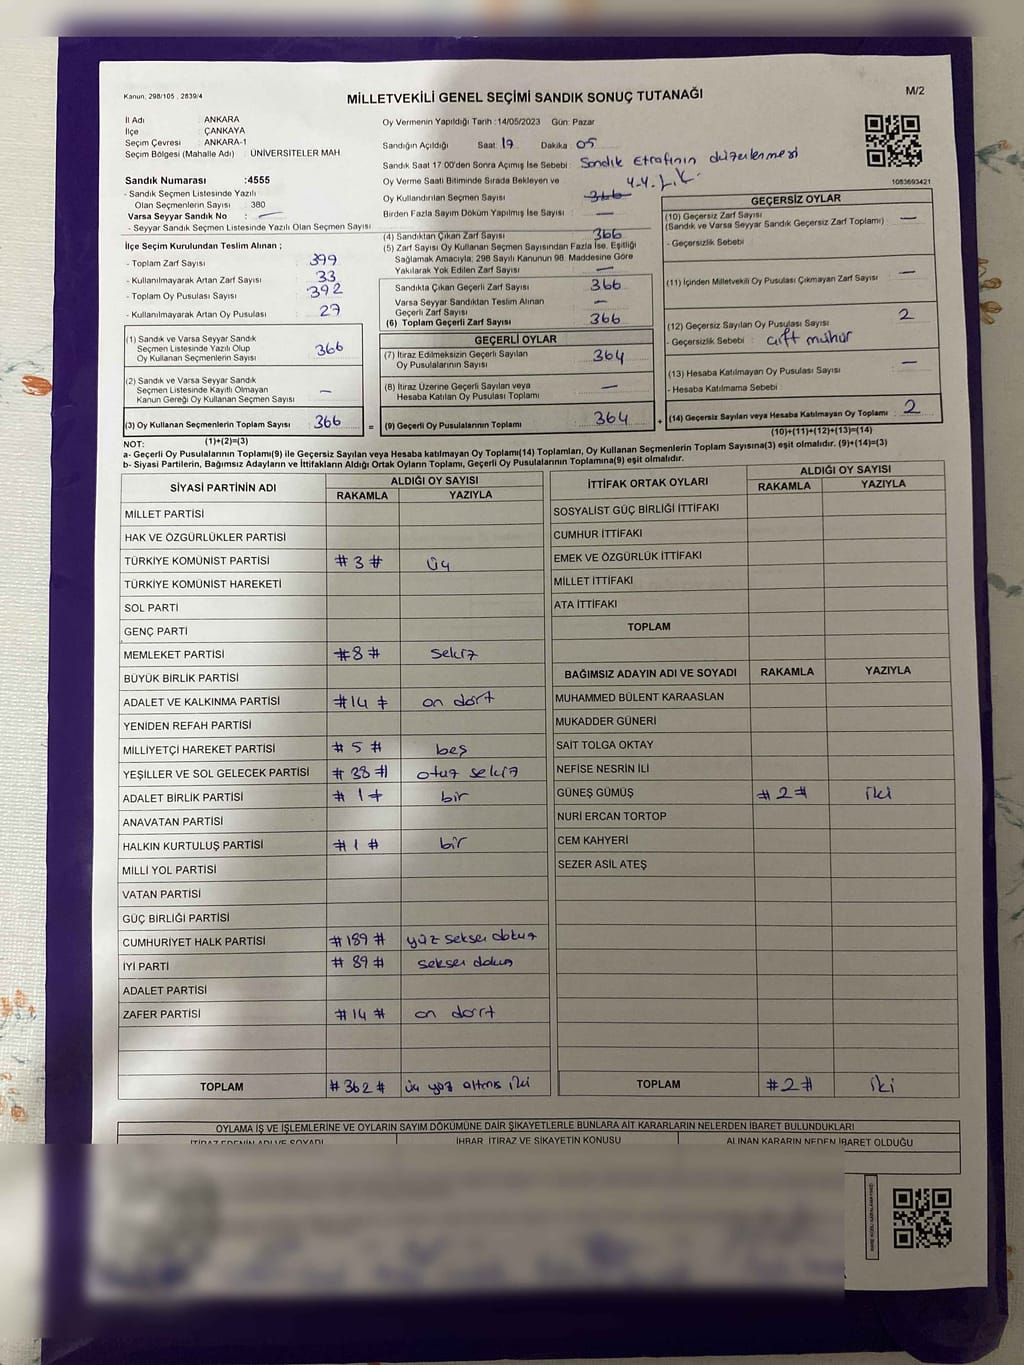 Kanun, 298/105 , 2839/4
MİLLETVEKİLİ GENEL SEÇİMİ SANDIK SONUÇ TUTANAĞI
M/2
İl Adı ANKARA
İlçe ÇANKAYA
Seçim Çevresi ANKARA-1
Seçim Bölgesi (Mahalle Adı) : ÜNİVERSİTELER MAH.
Oy Vermenin Yapıldığı Tarih :14/05/2023 Gün: Pazar
Sandığın Açıldığı Saat: 17 Dakika: 05
Sandık Saat 17:00'den Sonra Açımış İse Sebebi : Sandık Etrafının düzenlenmesi
Oy Verme Saati Bitiminde Sırada Bekleyen ve
Oy Kullandırılan Seçmen Sayısı : 366
Birden Fazla Sayım Döküm Yapılmış İse Sayısı : —
1083693421
Sandık Numarası :4555
- Sandık Seçmen Listesinde Yazılı
Olan Seçmenlerin Sayısı : 380
Varsa Seyyar Sandık No : —
- Seyyar Sandık Seçmen Listesinde Yazılı Olan Seçmen Sayısı
İlçe Seçim Kurulundan Teslim Alınan ;
- Toplam Zarf Sayısı : 399
- Kullanılmayarak Artan Zarf Sayısı : 33
- Toplam Oy Pusulası Sayısı : 392
- Kullanılmayarak Artan Oy Pusulası : 27
(1) Sandık ve Varsa Seyyar Sandık
Seçmen Listesinde Yazılı Olup
Oy Kullanan Seçmenlerin Sayısı : 366
(2) Sandık ve Varsa Seyyar Sandık
Seçmen Listesinde Kayıtlı Olmayan
Kanun Gereği Oy Kullanan Seçmen Sayısı : —
(3) Oy Kullanan Seçmenlerin Toplam Sayısı : 366
(1)+(2)=(3)
(4) Sandıktan Çıkan Zarf Sayısı : 366
(5) Zarf Sayısı Oy Kullanan Seçmen Sayısından Fazla İse, Eşitliği
Sağlamak Amacıyla; 298 Sayılı Kanunun 98. Maddesine Göre
Yakılarak Yok Edilen Zarf Sayısı : —
Sandıkta Çıkan Geçerli Zarf Sayısı : 366
Varsa Seyyar Sandıktan Teslim Alınan
Geçerli Zarf Sayısı : —
(6) Toplam Geçerli Zarf Sayısı : 366
GEÇERLİ OYLAR
(7) İtiraz Edilmeksizin Geçerli Sayılan
Oy Pusulalarının Sayısı : 364
(8) İtiraz Üzerine Geçerli Sayılan veya
Hesaba Katılan Oy Pusulası Toplamı : —
= (9) Geçerli Oy Pusulalarının Toplamı : 364
GEÇERSİZ OYLAR
(10) Geçersiz Zarf Sayısı
(Sandık ve Varsa Seyyar Sandık Geçersiz Zarf Toplamı) : —
- Geçersizlik Sebebi :
(11) İçinden Milletvekili Oy Pusulası Çıkmayan Zarf Sayısı : —
(12) Geçersiz Sayılan Oy Pusulası Sayısı : 2
- Geçersizlik Sebebi : çift mühür
(13) Hesaba Katılmayan Oy Pusulası Sayısı : —
- Hesaba Katılmama Sebebi :
+ (14) Geçersiz Sayılan veya Hesaba Katılmayan Oy Toplamı : 2
(10)+(11)+(12)+(13)=(14)
NOT:
a- Geçerli Oy Pusulalarının Toplamı(9) ile Geçersiz Sayılan veya Hesaba katılmayan Oy Toplamı(14) Toplamları, Oy Kullanan Seçmenlerin Toplam Sayısına(3) eşit olmalıdır. (9)+(14)=(3)
b- Siyasi Partilerin, Bağımsız Adayların ve İttifakların Aldığı Ortak Oyların Toplamı, Geçerli Oy Pusulalarının Toplamına(9) eşit olmalıdır.
SİYASİ PARTİNİN ADI ALDIĞI OY SAYISI
RAKAMLA YAZIYLA
MİLLET PARTİSİ
HAK VE ÖZGÜRLÜKLER PARTİSİ
TÜRKİYE KOMÜNİST PARTİSİ # 3 # üç
TÜRKİYE KOMÜNİST HAREKETİ
SOL PARTİ
GENÇ PARTİ
MEMLEKET PARTİSİ #8 # sekiz
BÜYÜK BİRLİK PARTİSİ
ADALET VE KALKINMA PARTİSİ #14 # on dört
YENİDEN REFAH PARTİSİ
MİLLİYETÇİ HAREKET PARTİSİ # 5 # beş
YEŞİLLER VE SOL GELECEK PARTİSİ # 38 # otuz sekiz
ADALET BİRLİK PARTİSİ # 1 # bir
ANAVATAN PARTİSİ
HALKIN KURTULUŞ PARTİSİ # 1 # bir
MİLLİ YOL PARTİSİ
VATAN PARTİSİ
GÜÇ BİRLİĞİ PARTİSİ
CUMHURİYET HALK PARTİSİ # 189 # yüz seksen dokuz
İYİ PARTİ # 89 # seksen dokuz
ADALET PARTİSİ
ZAFER PARTİSİ # 14 # on dört
TOPLAM # 362 # üç yüz altmış iki
İTTİFAK ORTAK OYLARI ALDIĞI OY SAYISI
RAKAMLA YAZIYLA
SOSYALİST GÜÇ BİRLİĞİ İTTİFAKI
CUMHUR İTTİFAKI
EMEK VE ÖZGÜRLÜK İTTİFAKI
MİLLET İTTİFAKI
ATA İTTİFAKI
TOPLAM
BAĞIMSIZ ADAYIN ADI VE SOYADI RAKAMLA YAZIYLA
MUHAMMED BÜLENT KARAASLAN
MUKADDER GÜNERİ
SAİT TOLGA OKTAY
NEFİSE NESRİN İLİ
GÜNEŞ GÜMÜŞ # 2 # iki
NURİ ERCAN TORTOP
CEM KAHYERİ
SEZER ASİL ATEŞ
TOPLAM # 2 # iki
OYLAMA İŞ VE İŞLEMLERİNE VE OYLARIN SAYIM DÖKÜMÜNE DAİR ŞİKAYETLERLE BUNLARA AİT KARARLARIN NELERDEN İBARET BULUNDUKLARI
İTİRAZ EDENİN ADI VE SOYADI İHBAR, İTİRAZ VE ŞİKAYETİN KONUSU ALINAN KARARIN NEDEN İBARET OLDUĞU